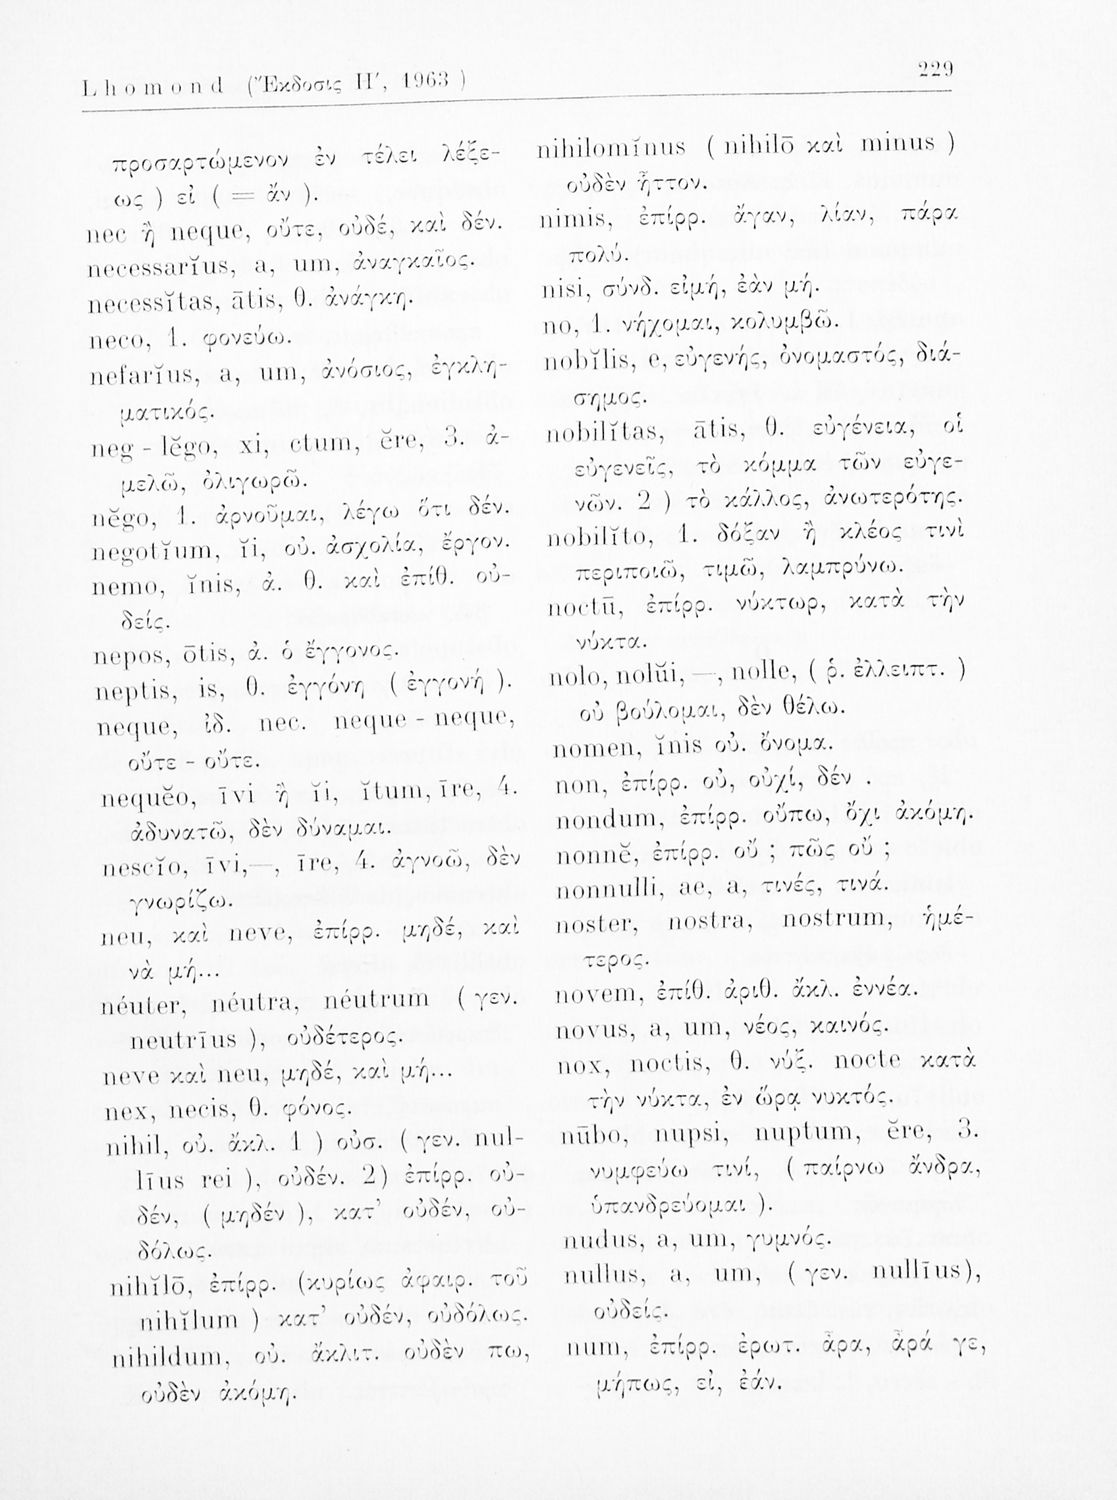 Lhomond (Ἔκδοσις Η', 1963)
229
προσαρτώμενον ἐν τέλει λέξε-
ως ) εἰ ( = ἄν ).
nec ἢ neque, οὔτε, οὐδέ, καὶ δέν.
necessarĭus, a, um, ἀναγκαῖος.
necessĭtas, ātis, θ. ἀνάγκη.
neco, 1. φονεύω.
nefarĭus, a, um, ἀνόσιος, ἐγκλη-
ματικός.
neg - lĕgo, xi, ctum, ĕre, 3. ἀ-
μελῶ, ὀλιγωρῶ.
nĕgo, 1. ἀρνοῦμαι, λέγω ὅτι δέν.
negotĭum, ĭi, οὐ. ἀσχολία, ἔργον.
nemo, ĭnis, ἀ. θ. καὶ ἐπίθ. οὐ-
δείς.
nepos, ōtis, ἀ. ὁ ἔγγονος.
neptis, is, θ. ἐγγόνη ( ἐγγονή ).
neque, ἰδ. nec. neque - neque,
οὔτε - οὔτε.
nequĕo, īvi ἢ ĭi, ĭtum, īre, 4.
ἀδυνατῶ, δὲν δύναμαι.
nescĭo, īvi,—, īre, 4. ἀγνοῶ, δὲν
γνωρίζω.
neu, καὶ neve, ἐπίρρ. μηδέ, καὶ
νὰ μή...
néuter, néutra, néutrum ( γεν.
neutrīus ), οὐδέτερος.
neve καὶ neu, μηδέ, καὶ μή...
nex, necis, θ. φόνος.
nihil, οὐ. ἄκλ. 1 ) οὐσ. ( γεν. nul-
līus rei ), οὐδέν. 2) ἐπίρρ. οὐ-
δέν, ( μηδέν ), κατ' οὐδέν, οὐ-
δόλως.
nihĭlō, ἐπίρρ. (κυρίως ἀφαιρ. τοῦ
nihĭlum ) κατ' οὐδέν, οὐδόλως.
nihildum, οὐ. ἄκλιτ. οὐδὲν πω,
οὐδὲν ἀκόμη.
nihilomĭnus ( nihilō καὶ minus )
οὐδὲν ἧττον.
nimis, ἐπίρρ. ἄγαν, λίαν, πάρα
πολύ.
nisi, σύνδ. εἰμή, ἐὰν μή.
no, 1. νήχομαι, κολυμβῶ.
nobĭlis, e, εὐγενής, ὀνομαστός, διά-
σημος.
nobilĭtas, ātis, θ. εὐγένεια, οἱ
εὐγενεῖς, τὸ κόμμα τῶν εὐγε-
νῶν. 2 ) τὸ κάλλος, ἀνωτερότης.
nobilĭto, 1. δόξαν ἢ κλέος τινὶ
περιποιῶ, τιμῶ, λαμπρύνω.
noctū, ἐπίρρ. νύκτωρ, κατὰ τὴν
νύκτα.
nolo, nolŭi, —, nolle, ( ῥ. ἐλλειπτ. )
οὐ βούλομαι, δὲν θέλω.
nomen, ĭnis οὐ. ὄνομα.
non, ἐπίρρ. οὐ, οὐχί, δέν .
nondum, ἐπίρρ. οὔπω, ὄχι ἀκόμη.
nonnĕ, ἐπίρρ. οὔ ; πῶς οὔ ;
nonnulli, ae, a, τινές, τινά.
noster, nostra, nostrum, ἡμέ-
τερος.
novem, ἐπίθ. ἀριθ. ἄκλ. ἐννέα.
novus, a, um, νέος, καινός.
nox, noctis, θ. νύξ. nocte κατὰ
τὴν νύκτα, ἐν ὥρᾳ νυκτός.
nūbo, nupsi, nuptum, ĕre, 3.
νυμφεύω τινί, ( παίρνω ἄνδρα,
ὑπανδρεύομαι ).
nudus, a, um, γυμνός.
nullus, a, um, ( γεν. nullīus),
οὐδείς.
num, ἐπίρρ. ἐρωτ. ἆρα, ἆρά γε,
μήπως, εἰ, ἐάν.